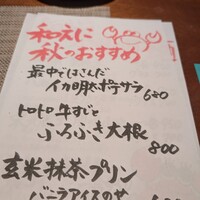 和えに
秋のおすすめ
最中ではさんだ
イカ明太ポテサラ 680
トロトロ牛すじと
ふろふき大根
800
玄米抹茶プリン
バニラアイスのせ